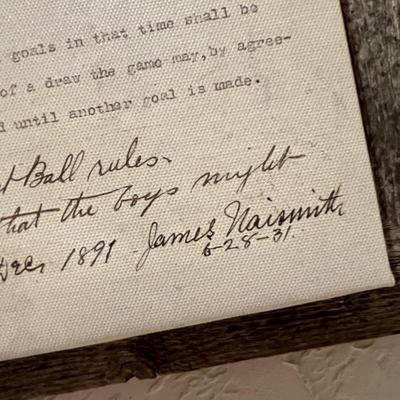 goals in that time shall be
of a draw the game may, by agree-
until another goal is made.
Ball rules.
that the boys might
Dec, 1891 James Naismith
6-28-31.